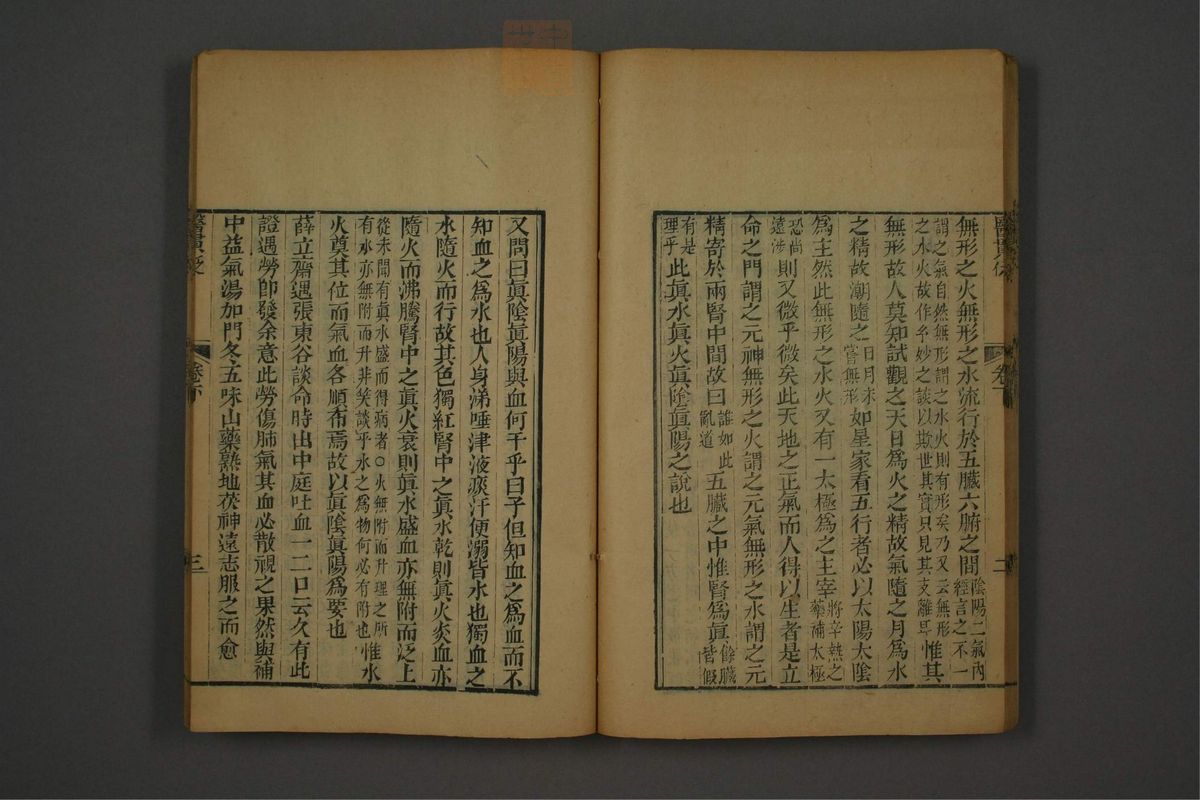 無形之火無形之水流行於五臟六腑之間陰陽二氣內經言之不一
謂之氣自然無形謂之水火則有形矣乃又云無形之水火故作多妙之談以欺世其實只見其支離耳惟其
無形故人莫知試觀之天日為火之精故氣隨之月為水
之精故潮隨之日月未嘗無形如星家看五行者必以太陽太陰
為主然此無形之水火又有一太極為之主宰將辛熱之藥補太極
恐尚遠涉則又微乎微矣此天地之正氣而人得以生者是立
命之門謂之元神無形之火謂之元氣無形之水謂之元
精寄於兩腎中間故曰誰如此亂道五臟之中惟腎為眞餘臟皆假
有是理乎此眞水眞火眞陰眞陽之說也
二
又問曰眞陰眞陽與血何干乎曰子但知血之為血而不
知血之為水也人身涕唾津液痰汗便溺皆水也獨血之
水隨火而行故其色獨紅腎中之眞水乾則眞火炎血亦
隨火而沸騰腎中之眞火衰則眞水盛血亦無附而泛上
從未聞有眞水盛而得病者○火無附而升理之所有水亦無附而升非笑談乎水之為物何必有附也惟水
火奠其位而氣血各順布焉故以眞陰眞陽為要也
薛立齋遇張東谷談命時出中庭吐血一二口云久有此
證遇勞卽發余意此勞傷肺氣其血必散視之果然與補
中益氣湯加門冬五味山藥熟地茯神遠志服之而愈
醫貫砭
卷下
三